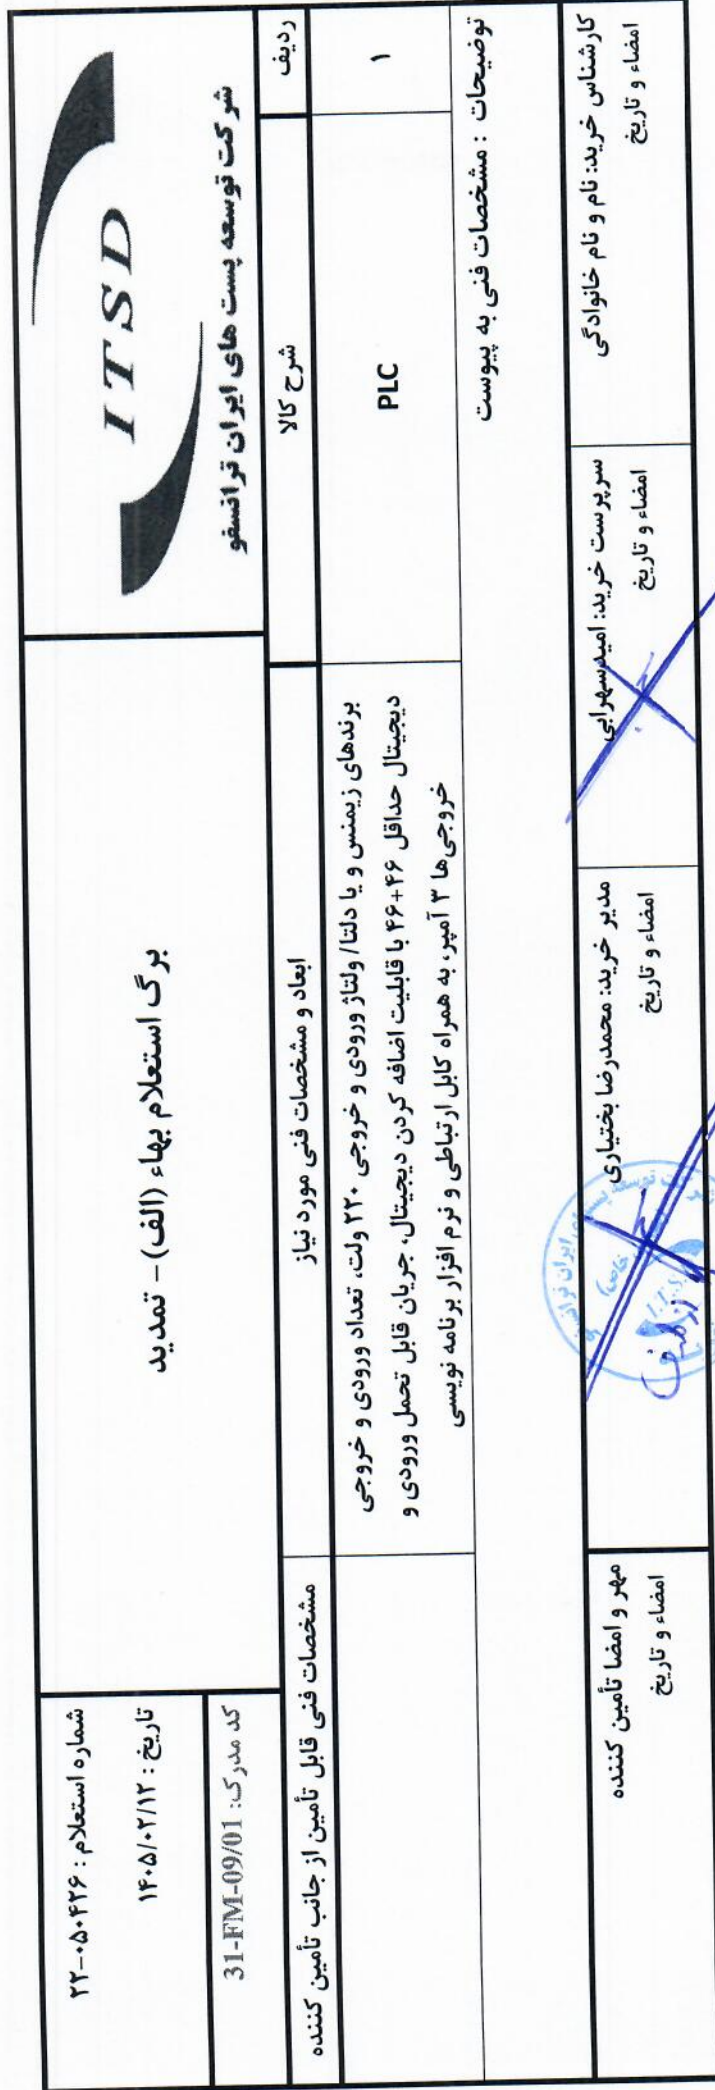 ITSD
شرکت توسعه پست های ایران ترانسفو
برگ استعلام بهاء (الف) – تمدید
شماره استعلام : ۲۲-۰۵۰۴۲۶
تاریخ : ۱۴۰۵/۰۲/۱۲
کد مدرک: 31-FM-09/01
ردیف
شرح کالا
ابعاد و مشخصات فنی مورد نیاز
مشخصات فنی قابل تأمین از جانب تأمین کننده
۱
PLC
برندهای زیمنس و یا دلتا/ ولتاژ ورودی و خروجی ۲۲۰ ولت، تعداد ورودی و خروجی
دیجیتال حداقل ۴۶+۴۶ با قابلیت اضافه کردن دیجیتال، جریان قابل تحمل ورودی و
خروجی‌ها ۳ آمپر، به همراه کابل ارتباطی و نرم افزار برنامه نویسی
توضیحات : مشخصات فنی به پیوست
کارشناس خرید: نام و نام خانوادگی
امضاء و تاریخ
سرپرست خرید: امیدسهرابی
امضاء و تاریخ
مدیر خرید: محمدرضا بختیاری
امضاء و تاریخ
مهر و امضا تأمین کننده
امضاء و تاریخ